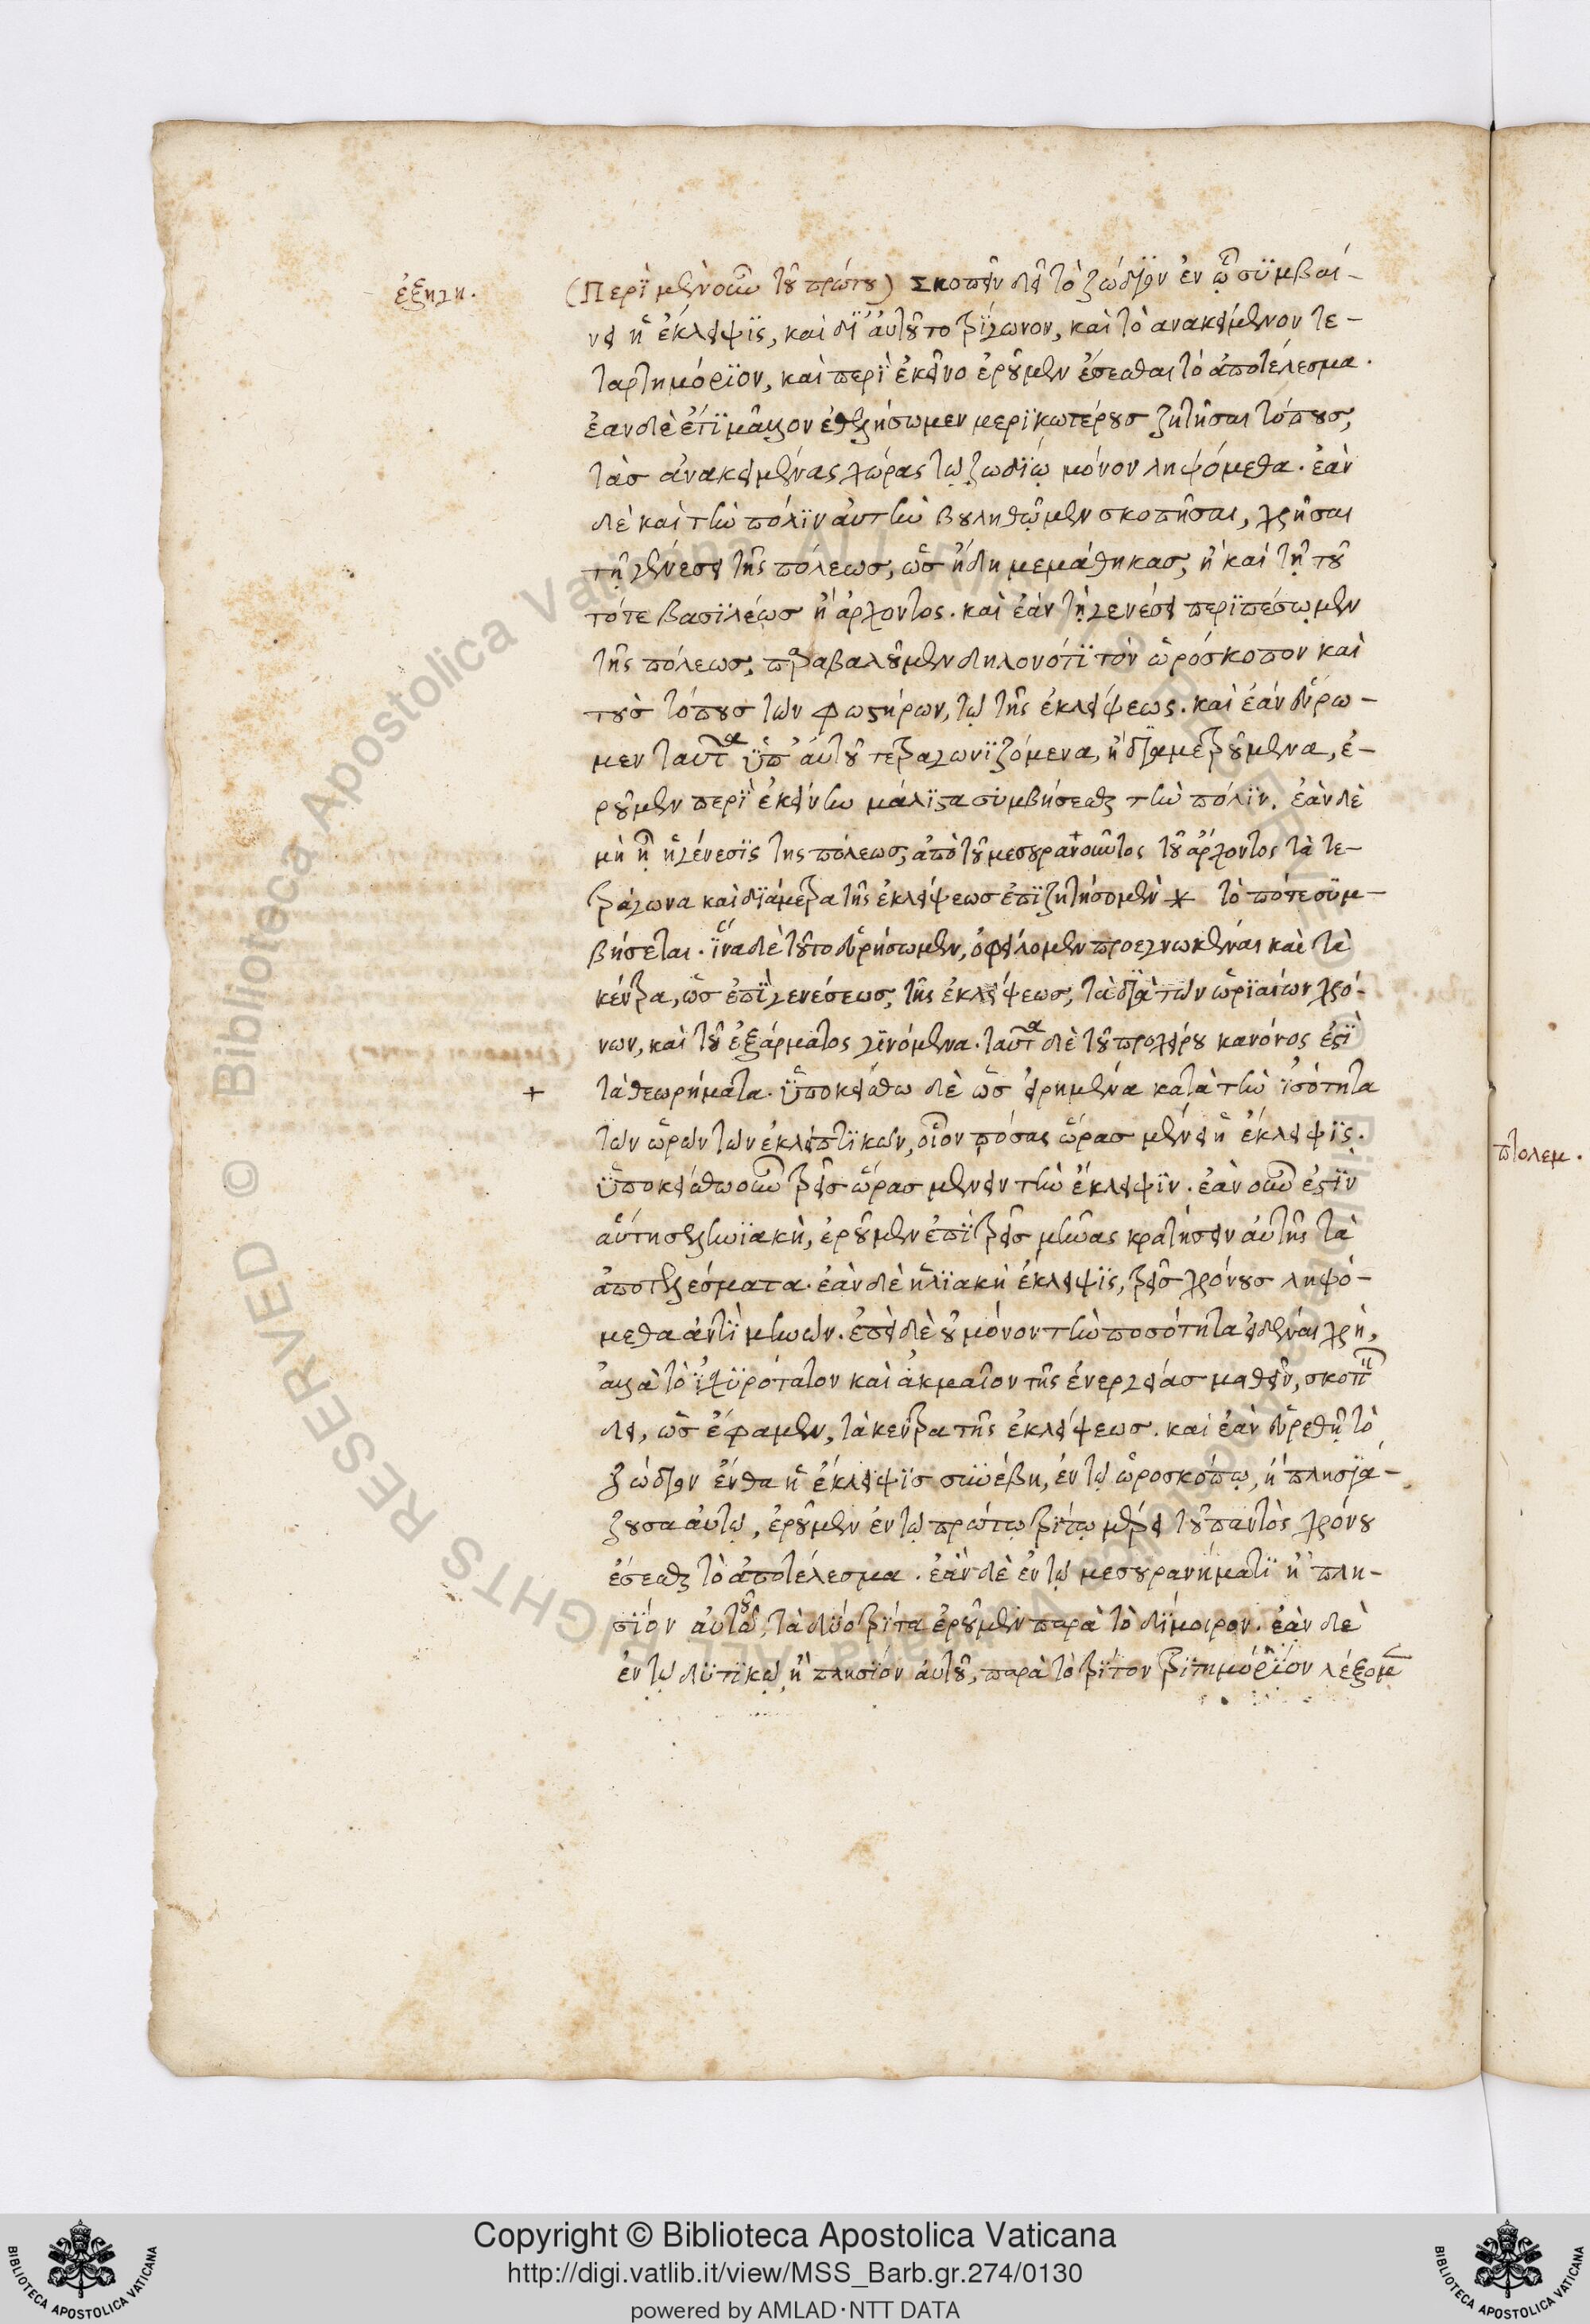 ἐξηγη.
(Περὶ μὲν οὖν τοῦ πρώτου) Σκοπεῖν δεῖ τὸ ζώδιον ἐν ᾧ συμβαί-
νει ἡ ἔκλειψις, καὶ δι' αὐτοῦ τὸ τρίγωνον, καὶ τὸ ανακείμενον τε-
ταρτημόριον, καὶ περὶ ἐκεῖνο ἐροῦμεν ἔσεσθαι τὸ ἀποτέλεσμα.
ἐαν δὲ ἔτι μᾶλλον ἐθελήσωμεν μερικωτέρους ζητῆσαι τόπους,
τὰσ ἀνακειμένας χώρας τῷ ζωδίῳ μόνον ληψόμεθα. ἐὰν
δὲ καὶ τὴν πόλιν αὐτὴν βουληθῶμεν σκοπῆσαι, χρῆσαι
τῇ γενέσει τῆς πόλεωσ, ὡσ ἤδη μεμάθηκασ, ἢ καὶ τῇ τοῦ
τότε βασιλέωσ ἢ ἄρχοντος. καὶ ἐάν τῇ γενέσει περιπέσωμεν
τῆς πόλεωσ, παραβαλοῦμεν δηλονότι τὸν ὡρόσκοπον καὶ
τοὺσ τόπουσ τῶν φωστήρων, τῷ τῆς ἐκλείψεως. καὶ ἐάν εὕρω-
μεν ταῦτα ὑπ' αὐτοῦ τετραγωνιζόμενα, ἢ διαμετρούμενα, ἐ-
ροῦμεν περὶ ἐκείνην μάλιστα συμβήσεσθαι τὴν πόλιν. ἐὰν δὲ
μὴ ᾖ ἡ γένεσις της πόλεωσ, ἀπὸ τοῦ μεσουρανοῦντος τοῦ ἄρχοντος τὰ τε-
τράγωνα καὶ διάμετρα τῆς ἐκλείψεωσ ἐπιζητήσομεν * τὸ πότε συμ-
βήσεται. ἵνα δὲ τοῦτο εὑρήσωμεν, ὀφείλομεν προεγνωκέναι καὶ τὰ
κέντρα, ὡσ ἐπὶ γενέσεωσ, τῆς ἐκλείψεωσ, τὰ διὰ τῶν ὡριαίων χρό-
νων, καὶ τοῦ ἐξάρματος γινόμενα. ταῦτα δὲ τοῦ προχείρου κανόνος ἐστὶ
+ τὰ θεωρήματα. ὑποκείσθω δὲ ὡσ εἰρημένα κατὰ τὴν ἰσότητα
τῶν ὡρῶν τῶν ἐκλειπτικῶν, οἷον πόσας ὥρασ μένει ἡ ἔκλειψις.
ὑποκείσθω οὖν τρεῖσ ὥρασ μένειν τὴν ἔκλειψιν. ἐὰν οὖν ἐστὶν
αὕτη σεληνιακὴ, ἐροῦμεν ἐπὶ τρεῖσ μῆνας κρατήσειν αὐτῆς τὰ
ἀποτελέσματα. ἐὰν δὲ ἡλιακὴ ἔκλειψις, τρεῖσ χρόνουσ ληψό-
μεθα ἀντὶ μηνῶν. ἐπεὶ δὲ οὐ μόνον τὴν ποσότητα εἰδέναι χρή,
ἀλλὰ τὸ ἰσχυρότατον καὶ ἀκμαῖον τῆς ἐνεργείασ μαθεῖν, σκοπεῖν
δεῖ, ὡσ ἔφαμεν, τὰ κέντρα τῆς ἐκλείψεωσ. καὶ ἐὰν εὑρεθῇ τὸ
ζώδιον ἔνθα ἡ ἔκλειψισ συνέβη, ἐν τῷ ὡροσκόπῳ, ἢ πλησιά-
ζουσα αὐτῷ, ἐροῦμεν ἐν τῷ πρώτῳ τρίτῳ μέρει τοῦ παντὸς χρόνου
ἔσεσθαι τὸ ἀποτέλεσμα. ἐὰν δὲ ἐν τῷ μεσουρανήματι ἢ πλη-
σίον αὐτοῦ, τὰ δύο τρίτα ἐροῦμεν παρὰ τὸ δίμοιρον. ἐὰν δὲ
ἐν τῷ δυτικῷ, ἢ πλησίον αὐτοῦ, παρὰ τὸ τρίτον τριτημόριον λέξομεν
πτολεμ.
Copyright © Biblioteca Apostolica Vaticana
http://digi.vatlib.it/view/MSS_Barb.gr.274/0130
powered by AMLAD·NTT DATA